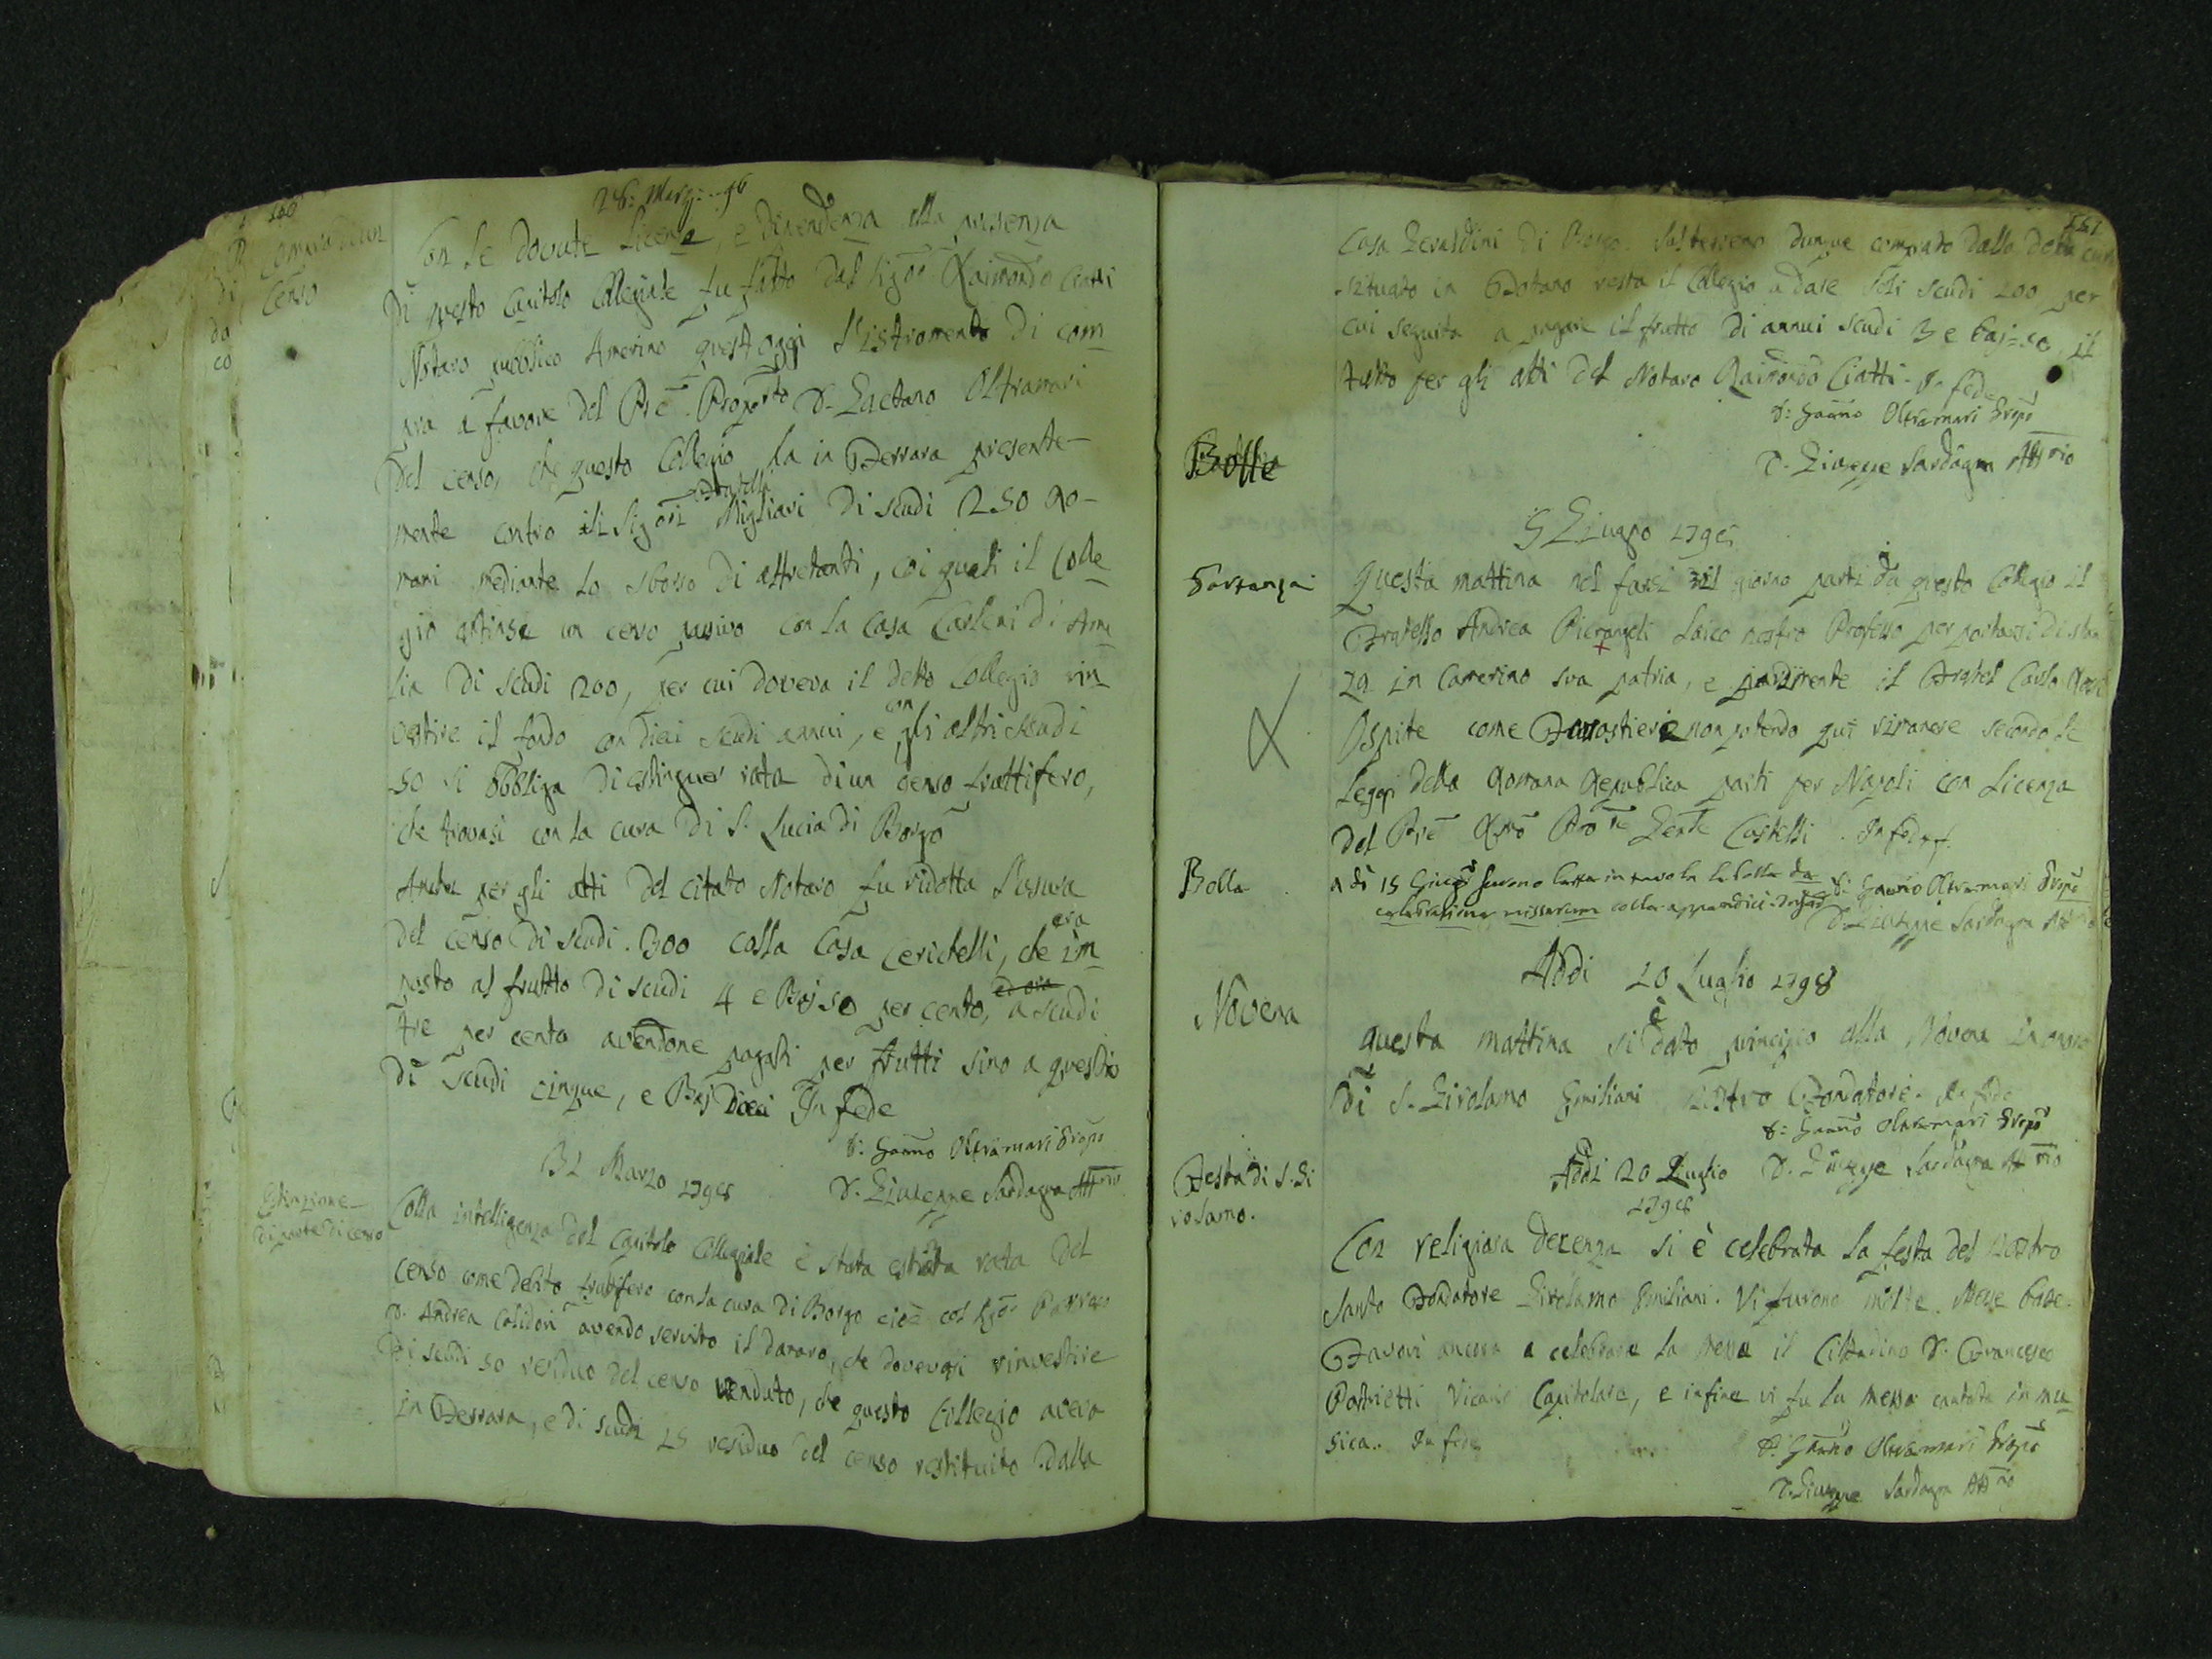 150
28: Marz: 98
Compra di un
Censo
Con le dovute Licenze, e dipendenza alla presenza
di questo Capitolo Collegiale fu fatto dal Sigr Raimondo Ciatti
Notaro pubblico Amerino quest'oggi l'istromento di com
pra a favore del Pre. Proposto D. Gaetano Oltramari
del censo, che questo Collegio ha in Ferrara presente-
mente contro ili Sigori Fratelli Migliari di scudi 250 Ro-
mani mediante lo sborso di altretanti, coi quali il Colle
gio estinse un censo passivo con la Casa Carleni di Ame
lia di Scudi 200, per cui doveva il detto Collegio rin
vestire il fondo con dieci scudi annui, e con gli altri scudi
50 si obbliga di estinguer rata di un censo fruttifero,
che trovasi con la cura di S. Lucia di Borgo
Anche per gli atti del citato Notaro fu ridotta l'usura
del censo di scudi 300 colla Casa Cerichelli, che era im
posto al frutto di scudi 4 e Baj 50 per cento, a scudi
tre per cento avendone pagati per frutti sino a questo
di scudi cinque, e Baj dieci In fede
D: Gaetno Oltramari Propo
31 Marzo 1798
D. Giuseppe Sardagna Attrio
Estinzione
di parte di censo
Colla intelligenza del Capitolo Collegiale è stata estinta rata del
censo come debito fruttifero con la cura di Borgo cioè col Sigr Parroco
D. Andrea Calidori avendo servito il danaro, che dovevasi rinvestire
di scudi 50 residuo del censo venduto, che questo Collegio aveva
in Ferrara, e di scudi 25 residuo del censo restituito dalla
151
Casa Geraldini di Borgo. Sul terreno dunque comprato dalla detta cura
situato in Fotano resta il Collegio a dare soli scudi 100 per
cui seguita a pagare il frutto di annui scudi 3 e baj=50, il
tutto per gli atti del Notaro Raimondo Ciatti. In fede
D: Gaetno Oltramari Propo
D. Giuseppe Sardagna Attrio
Bolle
5 Giugno 1798
Partenza
Questa mattina nel farsi il giorno partì da questo Collegio il
Fratello Andrea Pierangeli Laico nostro Professo per portarsi di stan
za in Camerino sua patria, e parimente il Fratel Carlo
Ospite come Forastiere non potendo qui rimanere secondo le
Leggi della Romana Republica partì per Napoli con Licenza
del Pre Rmo Prore Gente Castelli. In fede
Bolla
A di 15 Giugo furono lette in tavola le bolle da
celebratione missarum colle appendici. In fede
D: Gaetno Oltramari Propo
D. Giuseppe Sardagna Attrio
Addi 20 Luglio 1798
Novena
Questa mattina si è dato principio alla Novena in onore
di S. Girolamo Emiliani nostro Fondatore. In fede
D: Gaetno Oltramari Propo
D. Giuseppe Sardagna Attrio
Addi 20 Luglio
1798
Festa di S. Gi
rolamo.
Con religiosa decenza si è celebrata la festa del nostro
Santo Fondatore Girolamo Emiliani. Vi furono molte Messe basse.
Favorì ancora a celebrare la Messa il Cittadino D. Francesco
Patrietti Vicario Capitolare, e infine vi fu la Messa cantata in mu
sica. In fede
D: Gaetno Oltramari Propo
D. Giuseppe Sardagna Attrio